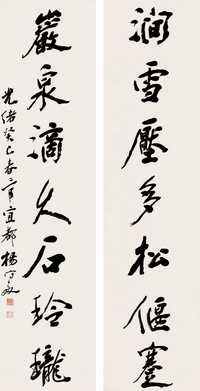 澗雪壓多松偃蹇
巖泉滴久石玲瓏
光緒癸巳春二月宜都楊守敬